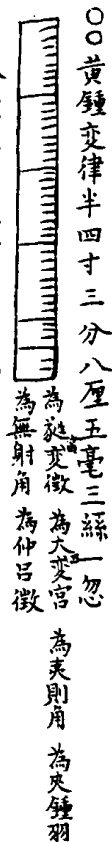 ○○黄鍾变律半四寸三分八厘五毫三絲一忽
為蕤變徵 為大變宮 為夷則角 為夾鍾羽
為無射角 為仲呂徵